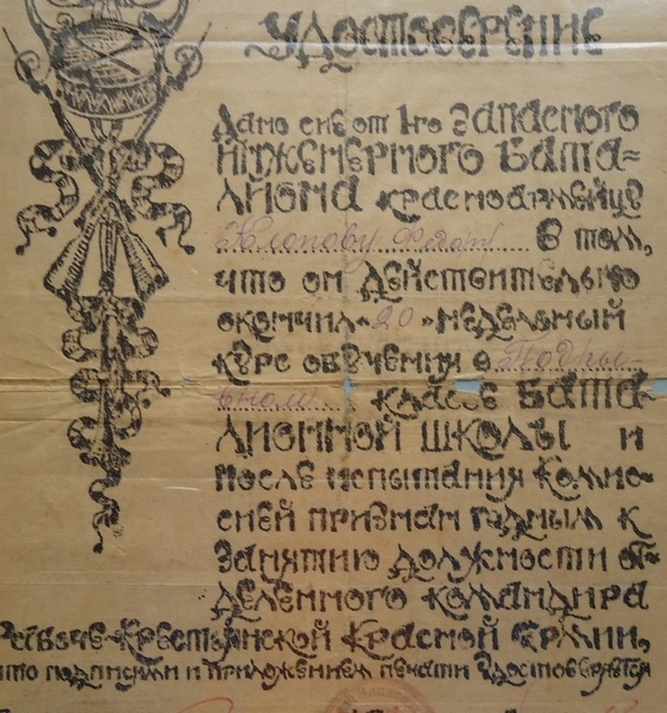 Удостоверение
Дано сие от 1-го Запасного
Инженерного Бата-
лиона красноармейцу
Клопову в том,
что он действительно
окончил "20" недельный
курс обучения в Подры-
вном классе Бата-
лионной школы и
после испытания Комис-
сией признан годным к
Занятию должности от-
деленного командира
Рабоче-Крестьянской Красной Армии,
что подписями и приложением печати удостоверяется